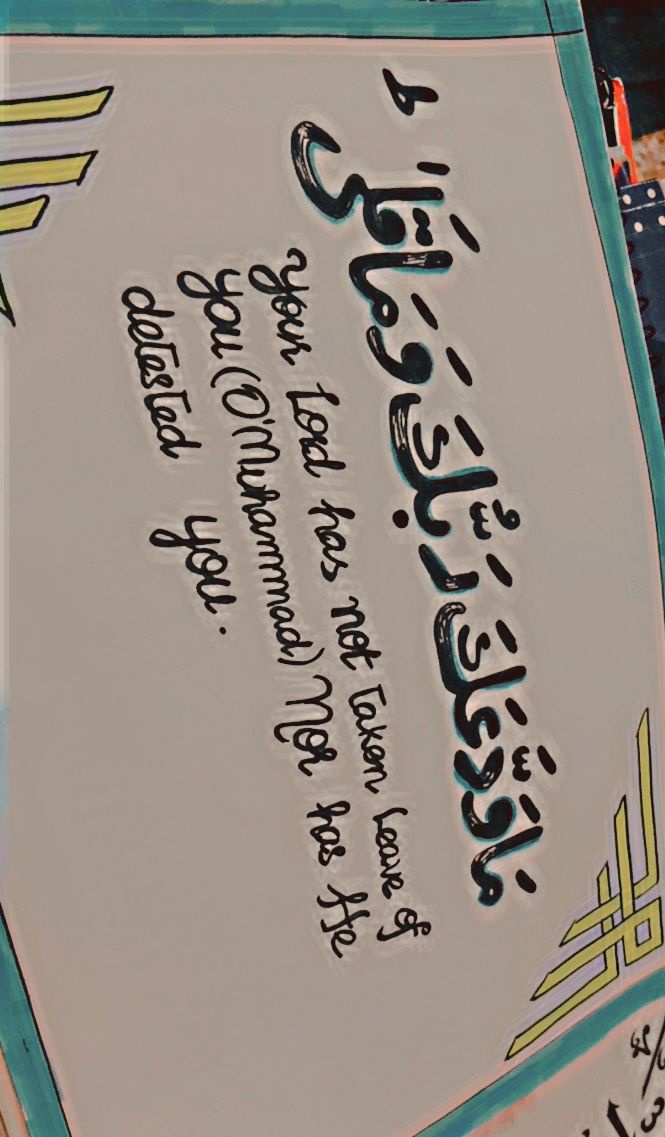 مَاوَدَّعَكَ رَبُّكَ وَمَاقَلَىٰ ط
Your Lord has not Taken Leave of
you (O'Muhammad) Nor has He
detested you.